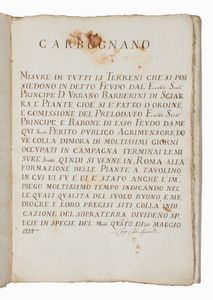 CARBOGNANO
MISURE DI TUTTI LI TERRENI CHE SI POS
SIEDONO IN DETTO FEUDO DAL
PRINCIPE D. URBANO BARBERINI DI SCIAR
RA E PIANTE CIOE SI E FATTO D'ORDINE,
E COMISSIONE DEL PRELODATO
PRINCIPE E BARONE DI ESSO FEUDO DA ME
QUI PERITO PUBLICO AGRIMENSORE, DO
VE COLLA DIMORA DI MOLTISSIMI GIORNI
OCCUPATI IN CAMPAGNA TERMINAI LE MI
SURE QUINDI SI VENNE IN ROMA ALLA
FORMAZIONE DELLE PIANTE A TAVOLINO
IN CUI VI FU E VI E STATO ANCHE L'IM
PIEGO MOLTISSIMO TEMPO INDICANDO NEL
LE QUALI QUALITA DEL SUOLO BUONO E ME
DIOCRE E LORO PRECISI SITI COLLA INDI
CAZIONE DEL SOPRATERRA DIVIDENDO SPE
CIE IN SPECIE DEL MAGGIO